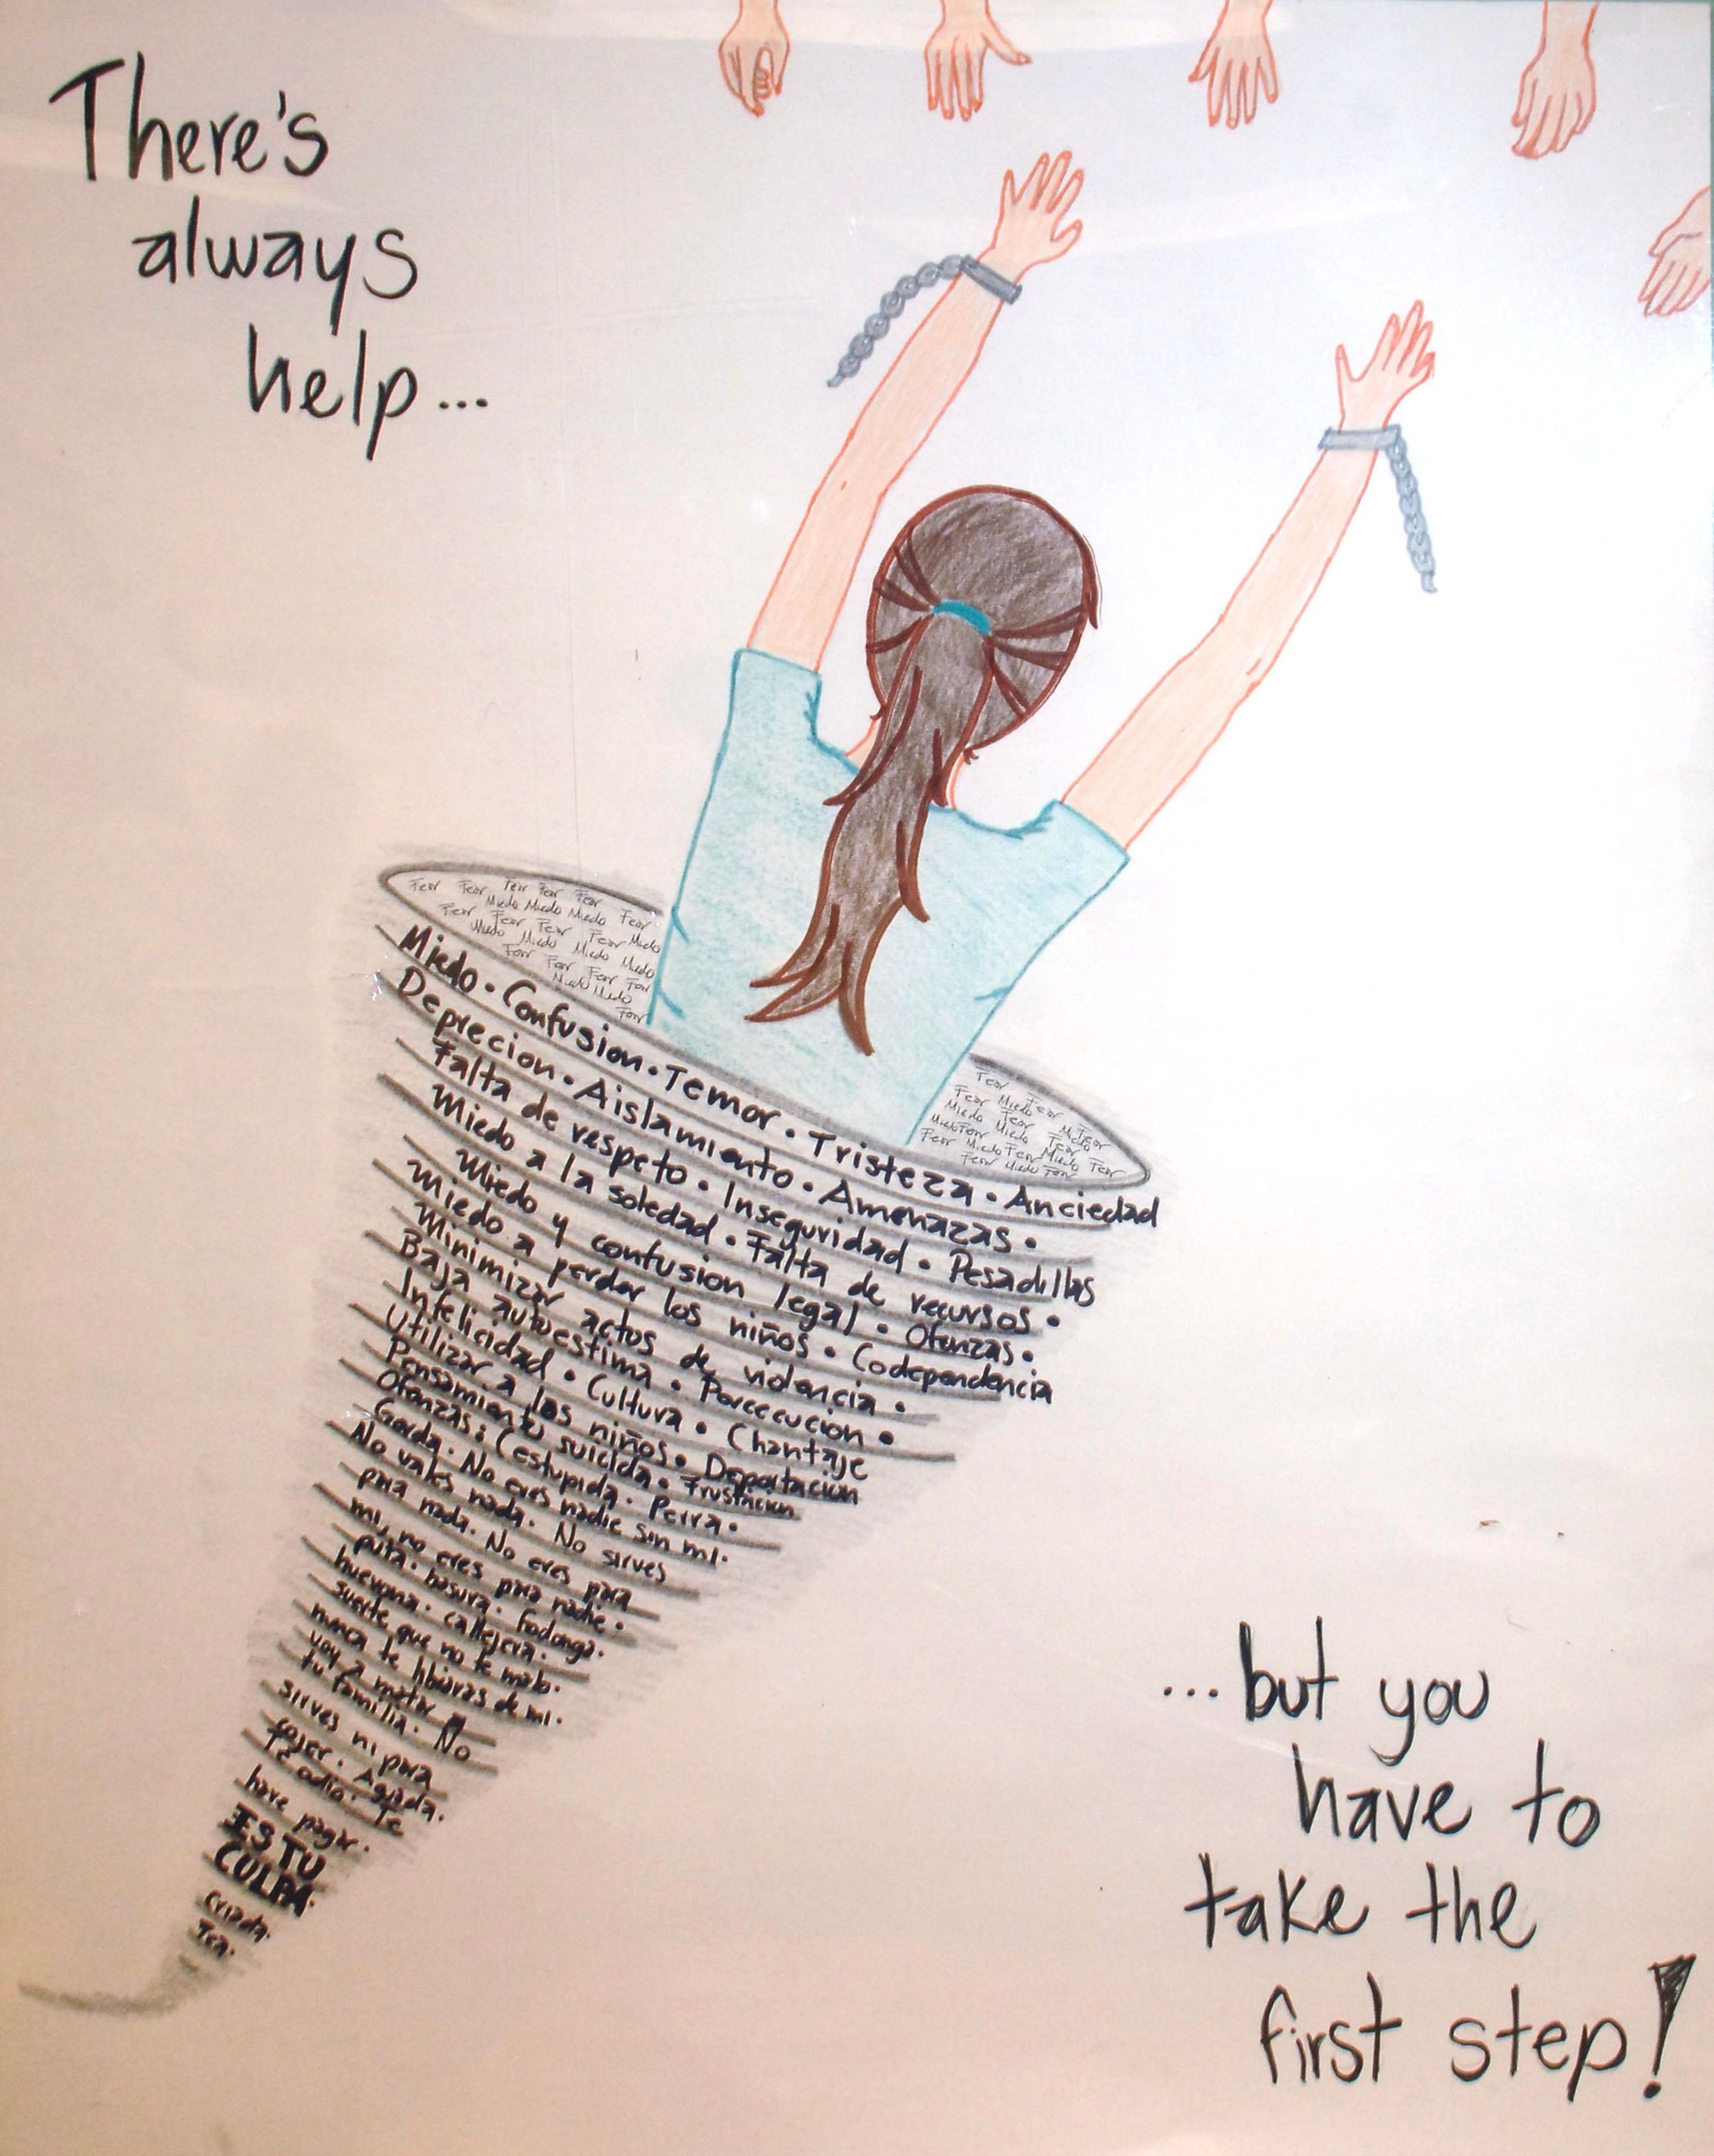 There's
always
help...
Fear Fear Fear Fear Fear
Miedo Miedo Miedo Fear
Fear Fear Fear Fear Miedo
Miedo Miedo Miedo Miedo
Fear Fear Fear Fear
Miedo Miedo
Fear
Fear
Fear Miedo Fear
Miedo Fear Miedo Fear
Miedo Fear Miedo Fear Miedo
Fear Miedo Fear Miedo Fear
Fear Miedo Fear
Miedo • Confusion • Temor • Tristeza • Anciedad
Deprecion • Aislamiento • Amenazas •
Falta de respeto • Inseguridad • Pesadillas
Miedo a la soledad • Falta de recursos •
Miedo y confusion legal • Ofenzas •
Miedo a perder los niños • Codependencia
Minimizar actos de violencia •
Baja autoestima • Persecucion •
Infelicidad • Cultura • Chantaje
Utilizar a los niños • Deportacion
Pensamiento suicida • Frustracion
Ofenzas: (estupida. Perra.
Gorda. No eres nadie sin mi.
No vales nada. No sirves
para nada. No eres para
mi, no eres para nadie.
puta. basura. fodonga.
huevona. callejera.
suerte que no te mato.
nunca te libraras de mi.
voy a matar a
tu familia. No
sirves ni para
cojer. Aguada.
Te odio. Te
hare pagar.
ES TU
CULPA.
criada.
Fea.
...but you
have to
take the
first step!